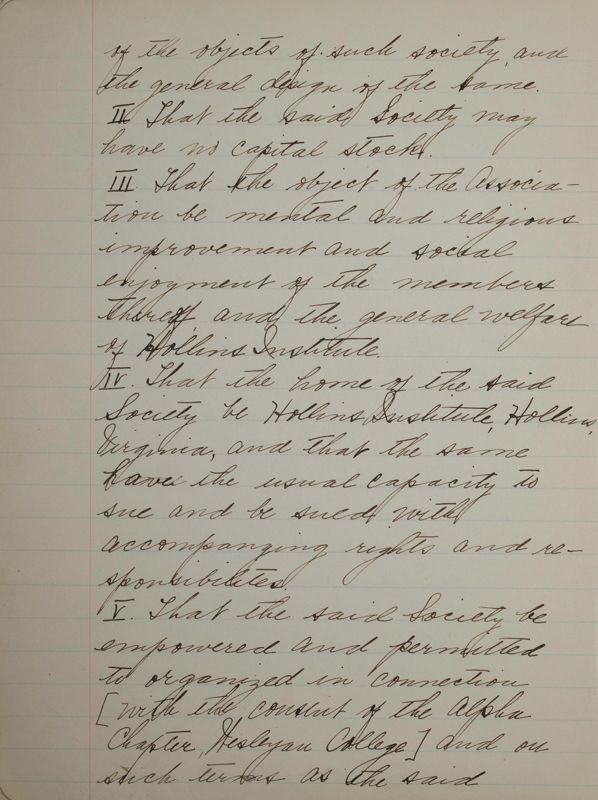 of the objects of such society, and
the general design of the same.
II That the said Society may
have no capital stock.
III. That the object of the Associa-
tion be mental and religious
improvement and social
enjoyment of the members
thereof, and the general welfare
of Hollins Institute.
IV. That the home of the said
Society be Hollins Institute, Hollins,
Virginia, and that the same
have the usual capacity to
sue and be sued, with
accompanying rights and re-
sponsibilites.
V. That the said Society be
empowered and permitted
to organized in connection
[with the consent of the Alpha
Chapter, Wesleyan College] and on
such terms as the said